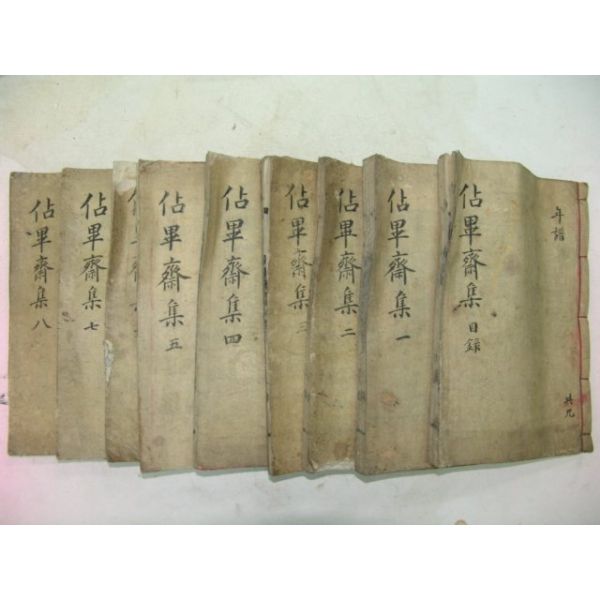 年譜
佔畢齋集 目錄
共九
佔畢齋集 一
佔畢齋集 二
佔畢齋集 三
佔畢齋集 四
佔畢齋集 五
佔畢齋集
佔畢齋集 七
佔畢齋集 八